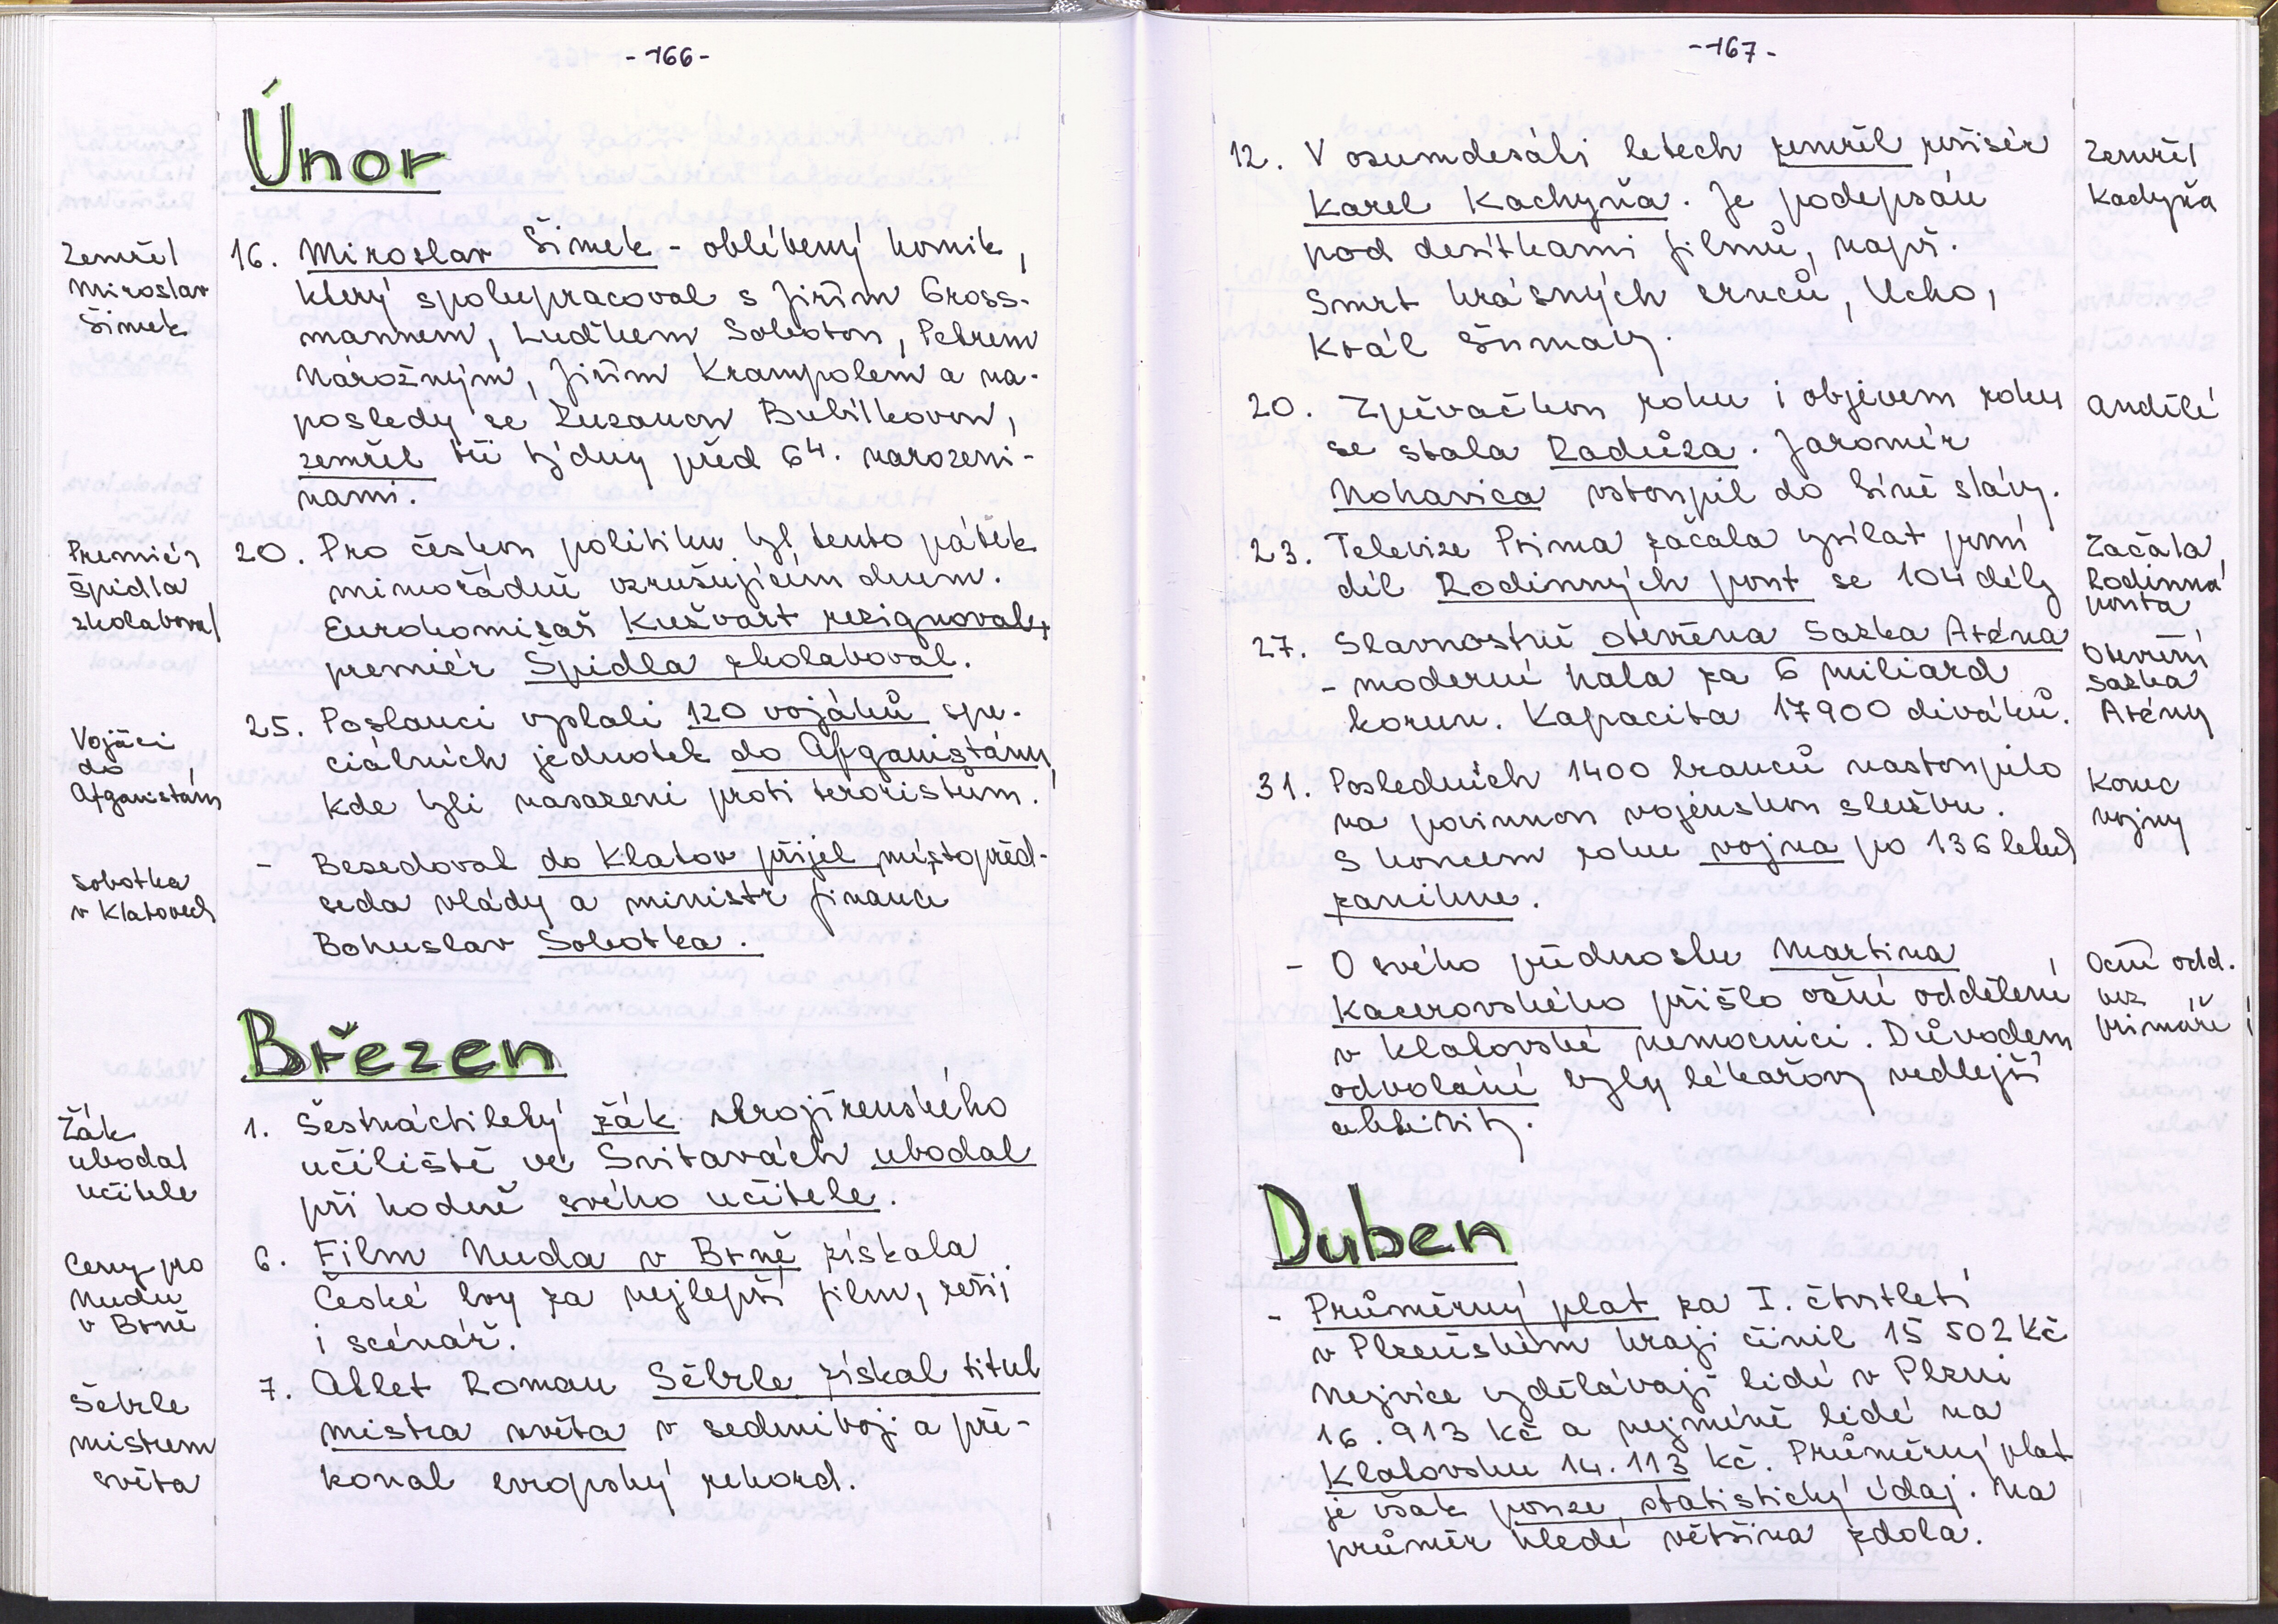 -166-
Únor
Zemřel
Miroslav
Šimek
16. Miroslav Šimek - oblíbený komik,
který spolupracoval s Jiřím Gross-
mannem, Luďkem Sobotou, Petrem
Nárožným, Jiřím Krampolem a na-
posledy se Zuzanou Bubílkovou,
zemřel tři týdny před 64. narozeni-
nami.
Premiér
Špidla
zkolaboval
20. Pro českou politiku byl tento pátek
mimořádně vzrušujícím dnem.
Eurokomisař Kužvart rezignoval,
premiér Špidla zkolaboval.
Vojáci
do
Afganistánu
25. Poslanci vyslali 120 vojáků spe-
ciálních jednotek do Afganistánu,
kde byli nasazeni proti teroristům.
Sobotka
v Klatovech
- Besedovat do Klatov přijel místopřed-
seda vlády a ministr financí
Bohuslav Sobotka.
Březen
Žák
ubodal
učitele
1. Šestnáctiletý žák strojírenského
učiliště ve Svitavách ubodal
při hodině svého učitele.
Ceny pro
Nudu
v Brně
6. Film Nuda v Brně získala
České lvy za nejlepší film, režii
i scénář.
Šebrle
mistrem
světa
7. Atlet Roman Šebrle získal titul
mistra světa v sedmiboji a pře-
konal evropský rekord.
-167-
12. V osumdesáti letech zemřel režisér
Karel Kachyňa. Je podepsán
pod desítkami filmů, např.
Smrt krásných srnců, Ucho,
Král Šumavy.
Zemřel
Kachyňa
20. Zpěvačkou roku i objevem roku
se stala Radůza. Jaromír
Nohavica vstoupil do Síně slávy.
Andělé
23. Televize Prima začala vysílat první
díl Rodinných pout se 104 díly
Začala
Rodinná
pouta
27. Slavnostně otevřena Sazka Aréna
- moderní hala za 6 miliard
korun. Kapacita 17900 diváků.
Otevření
Sazka
Arény
31. Posledních 1400 branců nastoupilo
na povinnou vojenskou službu.
S koncem roku vojna po 136 letech
zanikne.
Konec
vojny
- O svého přednostu Martina
Kacerovského přišlo oční oddělení
v klatovské nemocnici. Důvodem
odvolání byly lékařovy vedlejší
aktivity.
Oční odd.
bez
primáře!
Duben
- Průměrný plat za I. čtvrtletí
v Plzeňském kraji činil 15 502 Kč
Nejvíce vydělávají lidé v Plzni
16.913 Kč a nejméně lidé na
Klatovsku 14.113 Kč. Průměrný plat
je však pouze statistický údaj. Na
průměr hledí většina zdola.